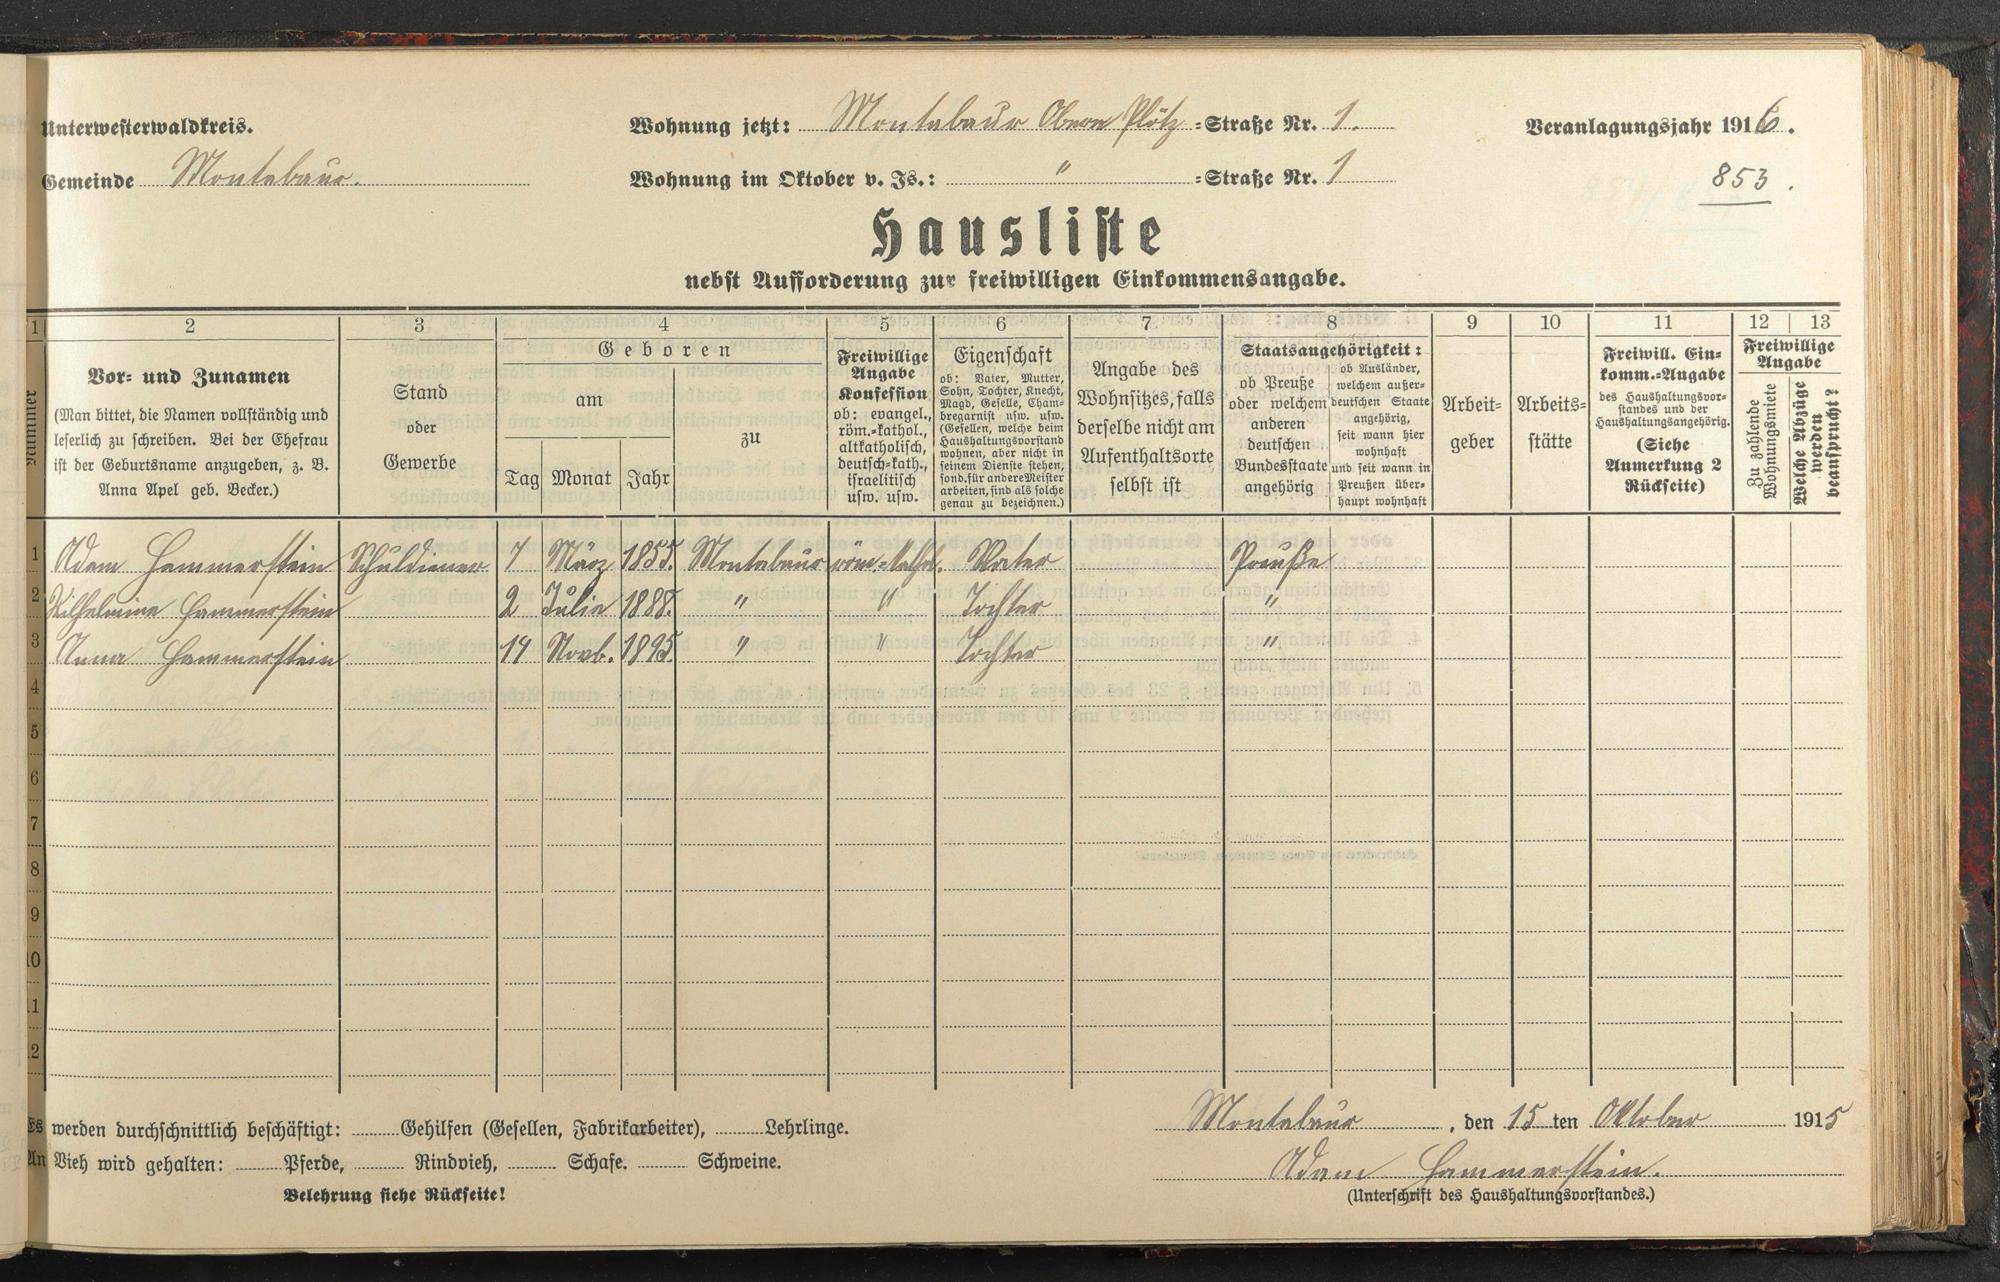 Unterwesterwaldkreis.
Wohnung jetzt: Montabaur Obere Plötz =Straße Nr. 1.
Veranlagungsjahr 1916.
Gemeinde Montabaur.
Wohnung im Oktober v. Js.: " =Straße Nr. 1
853.
Hausliste
nebst Aufforderung zur freiwilligen Einkommensangabe.
1 2 3 4 5 6 7 8 9 10 11 12 13
Nummer
Vor- und Zunamen
(Man bittet, die Namen vollständig und
leserlich zu schreiben. Bei der Ehefrau
ist der Geburtsname anzugeben, z. B.
Anna Apel geb. Becker.)
Stand
oder
Gewerbe
Geboren
am
zu
Tag Monat Jahr
Freiwillige
Angabe
Konfession
ob: evangel.,
röm.-kathol.,
altkatholisch,
deutsch-kath.,
israelitisch
usw. usw.
Eigenschaft
ob: Vater, Mutter,
Sohn, Tochter, Knecht,
Magd, Geselle, Cham-
bregarnist usw. usw.
(Gesellen, welche beim
Haushaltungsvorstand
wohnen, aber nicht in
seinem Dienste stehen,
sond. für andere Meister
arbeiten, sind als solche
genau zu bezeichnen.)
Angabe des
Wohnsitzes, falls
derselbe nicht am
Aufenthaltsorte
selbst ist
Staatsangehörigkeit:
ob Preuße
oder welchem
anderen
deutschen
Bundesstaate
angehörig
ob Ausländer,
welchem außer-
deutschen Staate
angehörig,
seit wann hier
wohnhaft
und seit wann in
Preußen über-
haupt wohnhaft
Arbeit-
geber
Arbeits-
stätte
Freiwill. Ein-
komm.-Angabe
des Haushaltungsvor-
standes und der
Haushaltungsangehörig.
(Siehe
Anmerkung 2
Rückseite)
Freiwillige
Angabe
Zu zahlende
Wohnungsmiete
Welche Abzüge
werden
beansprucht?
1 Adam Hammerstein Schuldiener 7 März 1855. Montabaur röm.-kathol. Vater Preuße
2 Wilhelmine Hammerstein 2 Julie 1888. " " Tochter "
3 Anna Hammerstein 14 Novb. 1895. " " Tochter "
4
5
6
7
8
9
10
11
12
Es werden durchschnittlich beschäftigt: Gehilfen (Gesellen, Fabrikarbeiter), Lehrlinge.
An Vieh wird gehalten: Pferde, Rindvieh, Schafe. Schweine.
Belehrung siehe Rückseite!
Montabaur, den 15 ten Oktober 1915
Adam Hammerstein.
(Unterschrift des Haushaltungsvorstandes.)